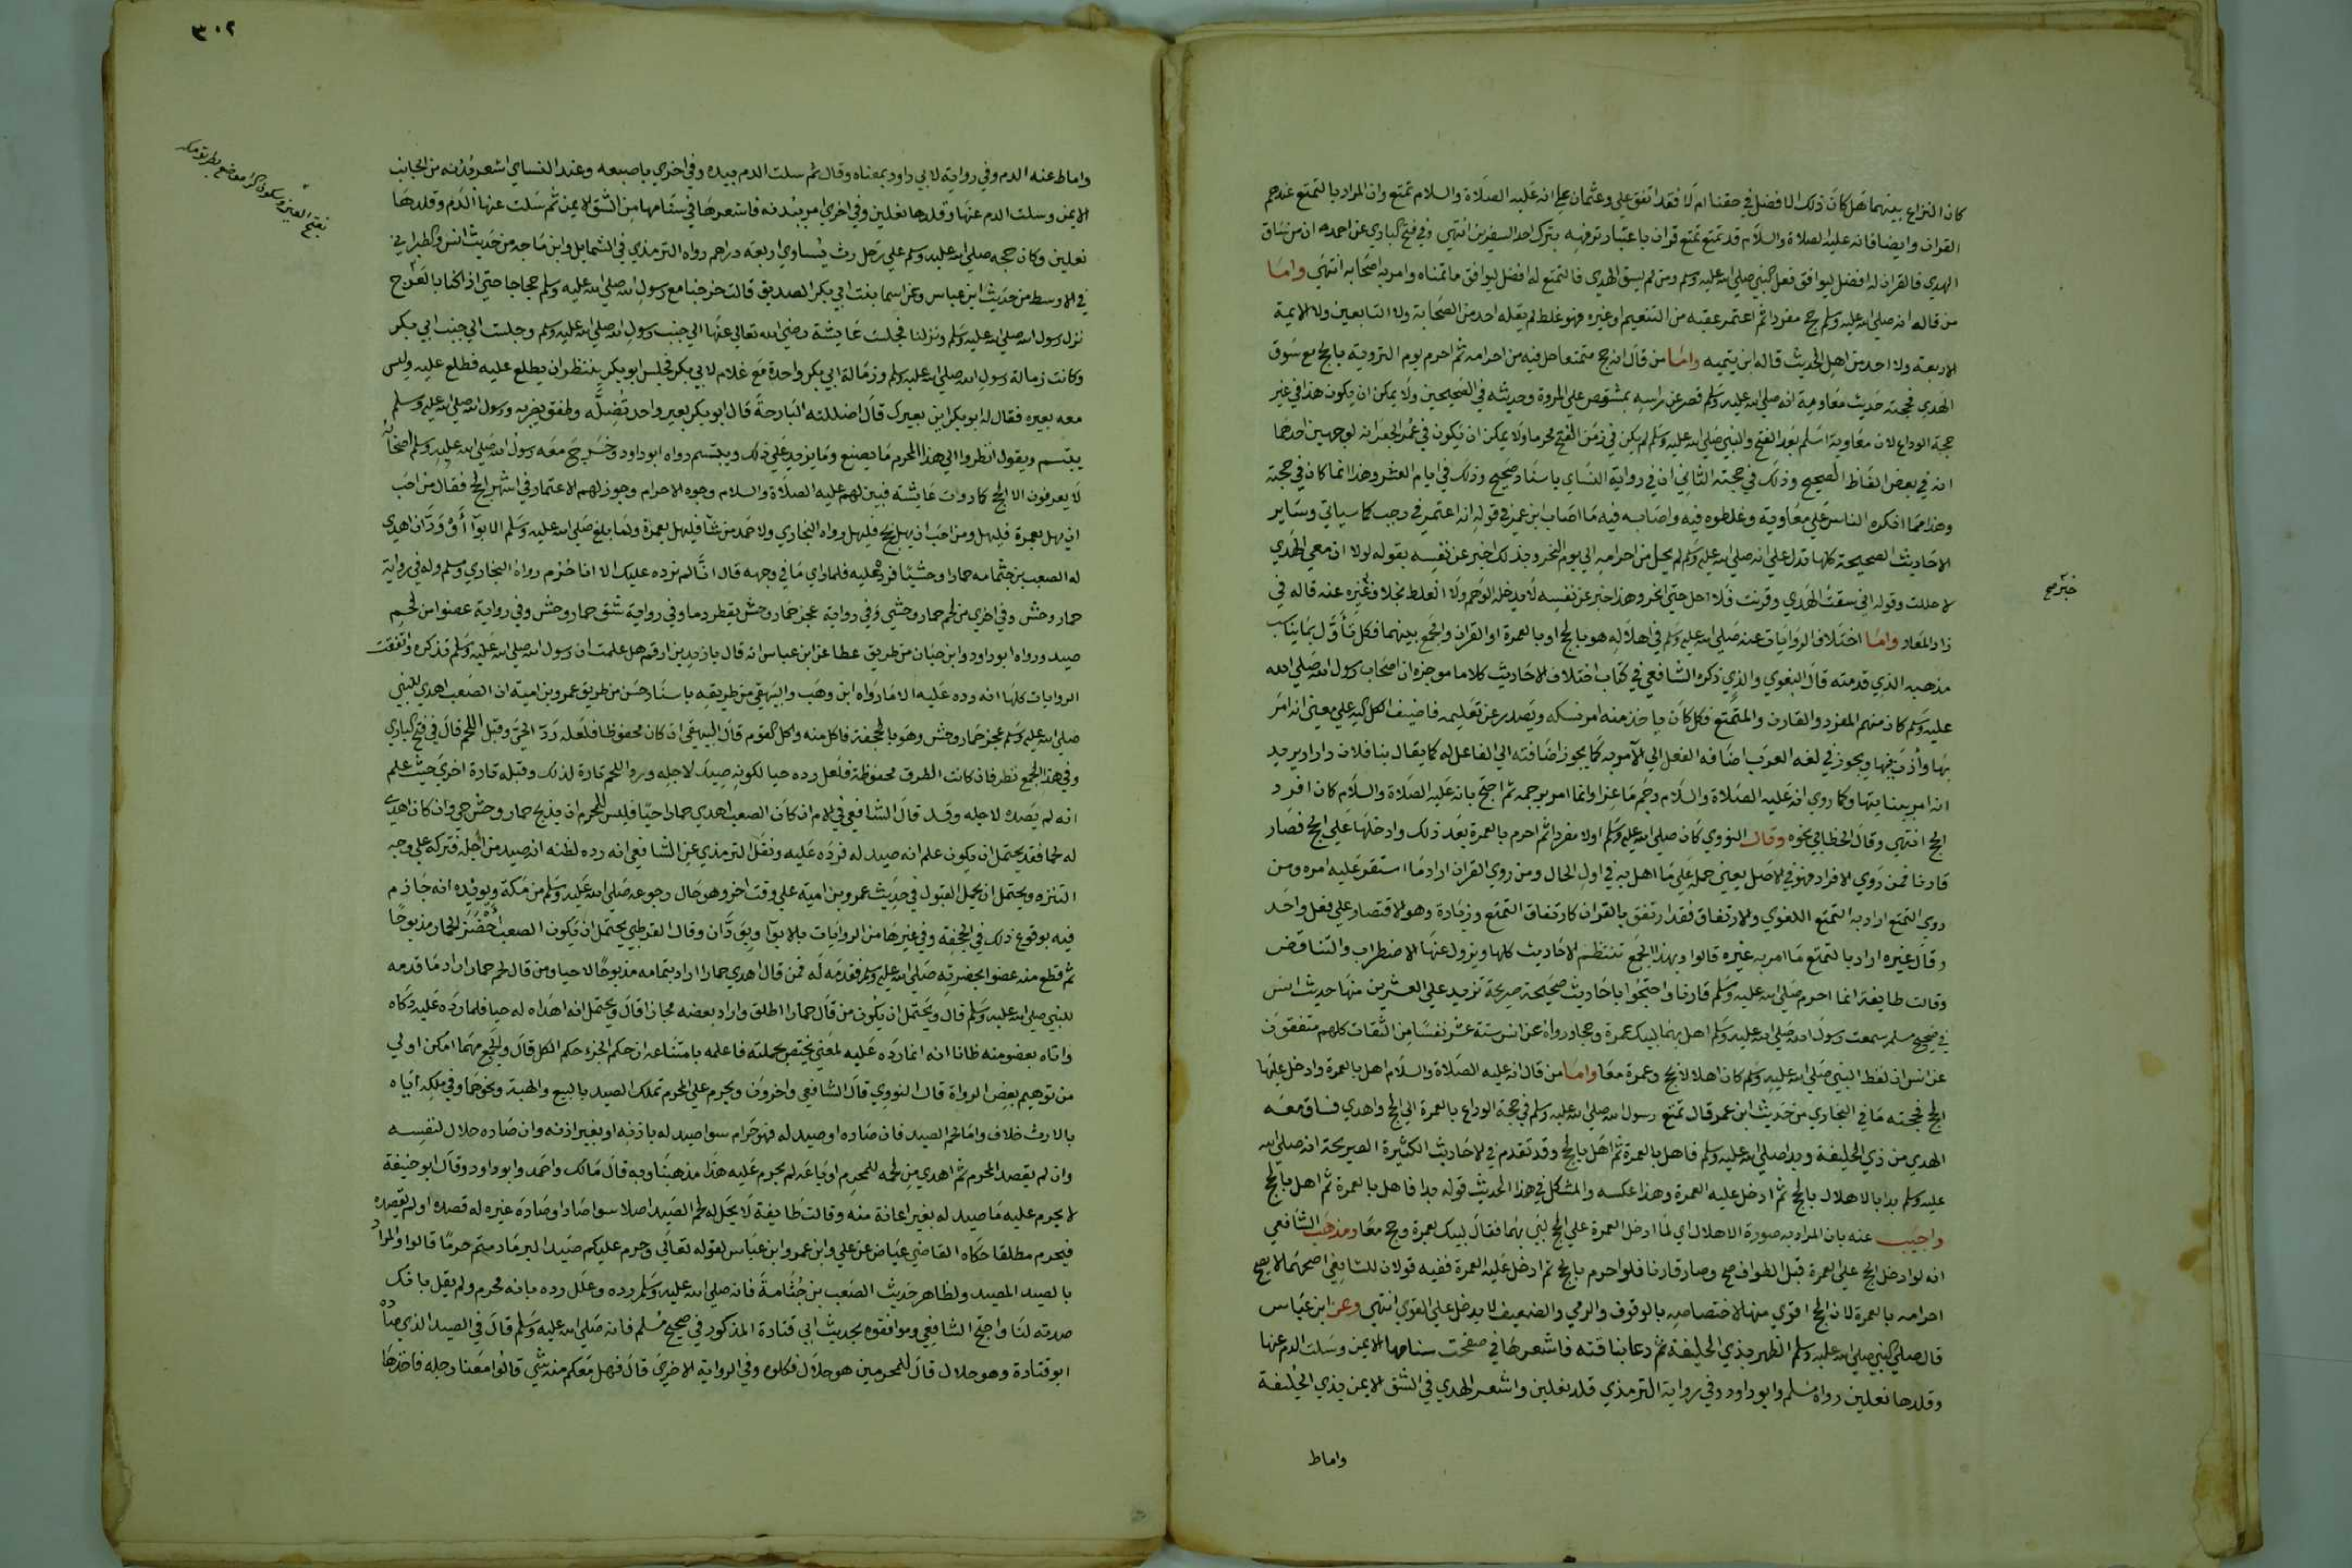 كان النزاع بينهما هل كان ذلك الافضل في حقنا ام لا فقد اتفق علي وعثمان على انه عليه الصلاة والسلام تمتع وان المراد بالتمتع عندهم
القران وايضا فانه عليه الصلاة والسلام قد تمتع تمتع قران باعتبار ترفهه بترك احد السفرين انتهي وفي فتح الباري عن احمد ان من ساق
الهدي فالقران له افضل ليوافق فعل النبي صلي الله عليه وسلم ومن لم يسق الهدي فالتمتع له افضل ليوافق ما تمناه وامر به اصحابه انتهي واما
من قال انه صلي الله عليه وسلم حج مفردا ثم اعتمر عقبه من التنعيم او غيره فهو غلط لم يقله احد من الصحابة ولا التابعين ولا الايمة
الاربعة ولا احد من اهل الحديث قاله ابن تيميه واما من قال انه حج متمتعا حل فيه من احرامه ثم احرم يوم التروية بالحج مع سوق
الهدي فحجته حديث معاوية انه صلي الله عليه وسلم قصر عن راسه بمشقص علي المروة وحديثه في الصحيحين ولا يمكن ان يكون هذا في غير
حجة الوداع لان معاوية اسلم بعد الفتح والنبي صلي الله عليه وسلم لم يكن في زمن الفتح محرما ولا يمكن ان يكون في عمرة الجعرانه لوجهين احدهما
انه في بعض الفاظ الصحيح وذلك في حجته الثاني ان في رواية النساي باسناد صحيح وذلك في ايام العشر وهذا انما كان في حجته
وهذا مما انكره الناس علي معاوية وغلطوه فيه واصابه فيه ما اصاب ابن عمر في قوله انه اعتمر في رجب كما سياتي وساير
الاحاديث الصحيحة كلها تدل علي انه صلي الله عليه وسلم لم يحل من احرامه الي يوم النحر وبذلك اخبر عن نفسه بقوله لولا ان معي الهدي
لاحللت وقوله اني سقت الهدي وقرنت فلا احل حتي انحر وهذا خبر عن نفسه لا يدخله الوهم ولا الغلط بخلاف غيره عنه قاله في
خبر صح
زاد المعاد واما اختلاف الروايات عنه صلي الله عليه وسلم في اهلاله هو بالحج او بالعمرة او القران والجمع بينهما فكل تأول بما يناسب
مذهبه الذي قدمته قال البغوي والذي ذكره الشافعي في كتاب اختلاف الاحاديث كلاما موجزه ان اصحاب رسول الله صلي الله
عليه وسلم كان منهم المفرد والقارن والمتمتع فكل كان ياخذ منه امر نسكه ويصدر عن تعليمه فاضيف الكل اليه علي معني انه امر
بها واذن فيها ويجوز في لغه العرب اضافه الفعل الي الآمر به كما يجوز اضافته الي الفاعل له كما يقال بنا فلان دارا ويريد
انه امر ببنايها وكما روي انه عليه الصلاة والسلام رجم ماعزا وانما امر برجمه ثم احتج بانه عليه الصلاة والسلام كان افرد
الحج انتهي وقال الخطابي نحوه وقال النووي كان صلي الله عليه وسلم اولا مفردا ثم احرم بالعمرة بعد ذلك وادخلها علي الحج فصار
قارنا فمن روي الافراد فهو في الاصل يعني حمله علي ما اهل به في اول الحال ومن روي القران اراد ما استقر عليه امره ومن
روي التمتع اراد به التمتع اللغوي والارتفاق فقد ارتفق بالقران كارتفاق التمتع وزيادة وهو الاقتصار علي فعل واحد
وقال غيره اراد بالتمتع ما امر به غيره قالوا وبهذا الجمع تنتظم الاحاديث كلها ويزول عنها الاضطراب والتناقض
وقالت طايفة انما احرم صلي الله عليه وسلم قارنا واحتجوا باحاديث صحيحة صريحة تزيد علي العشرين منها حديث انس
في صحيح مسلم سمعت رسول الله صلي الله عليه وسلم اهل بهما لبيك عمرة وحجا رواه عن انس ستة عشر نفسا من الثقات كلهم متفقون
عن انس ان لفظ النبي صلي الله عليه وسلم كان اهلالا بحج وعمرة معا واما من قال انه عليه الصلاة والسلام اهل بالعمرة وادخل عليها
الحج فحجته ما في البخاري من حديث ابن عمر قال تمتع رسول الله صلي الله عليه وسلم في حجة الوداع بالعمرة الي الحج واهدي فساق معه
الهدي من ذي الحليفة وبدا صلي الله عليه وسلم فاهل بالعمرة ثم اهل بالحج وقد تقدم في الاحاديث الكثيرة الصريحة انه صلي الله
عليه وسلم بدا بالاهلال بالحج ثم ادخل عليه العمرة وهذا عكسه والمشكل في هذا الحديث قوله بدا فاهل بالعمرة ثم اهل بالحج
واجيب عنه بان المراد به صورة الاهلال اي لما ادخل العمرة علي الحج لبي بهما فقال لبيك بعمرة وحج معا ومذهب الشافعي
انه لو ادخل الحج علي العمرة قبل الطواف صح وصار قارنا فلو احرم بالحج ثم ادخل عليه العمرة ففيه قولان للشافعي اصحهما لا يصح
احرامه بالعمرة لان الحج اقوي منها لاختصاصه بالوقوف والرمي والضعيف لا يدخل علي القوي انتهي وعن ابن عباس
قال صلي النبي صلي الله عليه وسلم الظهر بذي الحليفة ثم دعا بناقته فاشعرها في صفحت سنامها الايمن وسلت الدم عنها
وقلدها نعلين رواه مسلم وابو داود وفي رواية الترمذي قلد نعلين واشعر الهدي في الشق الايمن بذي الحليفة
واماط
٣٠٢
واماط عنه الدم وفي رواية لابي داود بمعناه وقال ثم سلت الدم بيده وفي اخري باصبعه وعند النساي اشعر بدنه من الجانب
الايمن وسلت الدم عنها وقلدها نعلين وفي اخري امر ببدنه فاشعرها في سنامها من الشق الايمن ثم سلت عنها الدم وقلدها
نعلين وكان حجه صلي الله عليه وسلم علي رحل رث يساوي اربعة دراهم رواه الترمذي في الشمايل وابن ماجه من حديث انس والطبراني
في الاوسط من حديث ابن عباس وعن اسما بنت ابي بكر الصديق قالت خرجنا مع رسول الله صلي الله عليه وسلم حجاجا حتي اذا كنا بالعرج
بفتح العين وسكون الراء موضع بطريق مكه
نزل رسول الله صلي الله عليه وسلم ونزلنا فجلست عايشة رضي الله تعالي عنها الي جنب رسول الله صلي الله عليه وسلم وجلست الي جنب ابي بكر
وكانت زمالة رسول الله صلي الله عليه وسلم وزمالة ابي بكر واحدة مع غلام لابي بكر فجلس ابو بكر ينتظر ان يطلع عليه فطلع عليه وليس
معه بعيره فقال له ابو بكر اين بعيرك قال اضللته البارحة قال ابو بكر بعير واحد تضله وطفق يضربه ورسول الله صلي الله عليه وسلم
يبتسم ويقول انظروا الي هذا المحرم ما يصنع وما يزيد علي ذلك ويبتسم رواه ابو داود وخرج معه رسول الله صلي الله عليه وسلم اصحابه
لا يعرفون الا الحج كما روت عايشة فبين لهم عليه الصلاة والسلام وجوه الاحرام وجوز لهم الاعتمار في اشهر الحج فقال من احب
ان يهل بعمرة فليهل ومن احب ان يهل بحج فليهل رواه البخاري ولاحمد من شآ فليهل بعمرة ولما بلغ صلي الله عليه وسلم الابوآ أو ودان اهدي
له الصعب بن جثامه حمارا وحشيا فرده عليه فلما راي ما في وجهه قال انا لم نرده عليك الا انا حرم رواه البخاري ومسلم وله في رواية
حمار وحش وفي اخري من لحم حمار وحشي وفي رواية عجز حمار وحش يقطر دما وفي رواية شق حمار وحش وفي رواية عضوا من لحم
صيد ورواه ابو داود وابن حبان من طريق عطا عن ابن عباس انه قال يا زيد بن ارقم هل علمت ان رسول الله صلي الله عليه وسلم فذكره واتفقت
الروايات كلها انه رده عليه الا ما رواه ابن وهب والبيهقي من طريقه باسناد حسن من طريق عمرو بن امية ان الصعب اهدي للنبي
صلي الله عليه وسلم عجز حمار وحش وهو بالجحفة فاكل منه واكل القوم قال البيهقي ان كان محفوظا فلعله رد الحي وقبل اللحم قال في فتح الباري
وفي هذا الجمع نظر فان كانت الطرق محفوظة فلعل رده حيا لكونه صيد لاجله ورد اللحم تارة لذلك وقبله تارة اخري حيث علم
انه لم يصده لاجله وقد قال الشافعي في الام ان كان الصعب اهدي حمارا حيا فليس للمحرم ان يذبح حمار وحش حي وان كان اهدي
له لحما فقد يحتمل ان يكون علم انه صيد له فرده عليه ونقل الترمذي عن الشافعي انه رده لظنه انه صيد من اجله فتركه علي وجه
التنزه ويحتمل ان يحمل القبول في حديث عمرو بن امية علي وقت اخر وهو حال رجوعه صلي الله عليه وسلم من مكة ويويده انه جازم
فيه بوقوع ذلك في الجحفة وفي غيرها من الروايات بالابوآ وبودان وقال القرطبي يحتمل ان يكون الصعب احضر الحمار مذبوحا
ثم قطع منه عضوا بحضرته صلي الله عليه وسلم فقدمه له فمن قال اهدي حمارا اراد بتمامه مذبوحا لا حيا ومن قال لحم حمار اراد ما قدمه
للنبي صلي الله عليه وسلم قال ويحتمل ان يكون من قال حمارا اطلق واراد بعضه مجازا قال ويحتمل انه اهداه له حيا فلما رده عليه ذكاه
واتاه بعضو منه ظانا انه انما رده عليه لمعني يختص بجملته فاعلمه بامتناعه ان حكم الجزء حكم الكل قال والجمع مهما امكن اولي
من توهيم بعض الرواة قال النووي قال الشافعي واخرون ويحرم علي المحرم تملك الصيد بالبيع والهبة ونحوهما وفي ملكه اياه
بالارث خلاف واما لحم الصيد فان صاده او صيد له فهو حرام سوا صيد له باذنه او بغير اذنه وان صاده حلال لنفسه
وان لم يقصد المحرم ثم اهدي من لحمه للمحرم او باعه لم يحرم عليه هذا مذهبنا وبه قال مالك واحمد وابو داود وقال ابو حنيفة
لا يحرم عليه ما صيد له بغير اعانة منه وقالت طايفة لا يحل له لحم الصيد اصلا سوا صاد او صاده غيره له قصده او لم يقصده
فيحرم مطلقا حكاه القاضي عياض عن علي وابن عمر وابن عباس لقوله تعالي وحرم عليكم صيد البر ما دمتم حرما قالوا والمراد
بالصيد المصيد ولظاهر حديث الصعب بن جثامة فانه صلي الله عليه وسلم رده وعلل رده بانه محرم ولم يقل بانك
صدته لنا واحتج الشافعي وموافقوه بحديث ابي قتادة المذكور في صحيح مسلم فانه صلي الله عليه وسلم قال في الصيد الذي صاده
ابو قتادة وهو حلال قال للمحرمين هو حلال فكلوه وفي الرواية الاخري قال فهل معكم منه شي قالوا معنا رجله فاخذها